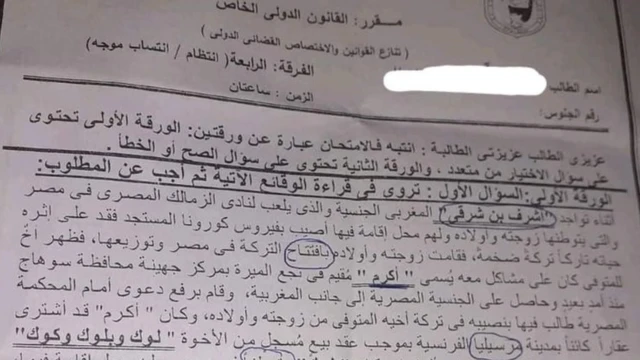 مقرر: القانون الدولى الخاص
( تنازع القوانين والاختصاص القضائى الدولى )
الفرقة: الرابعة( انتظام / انتساب موجه )
اسم الطالب
الزمن: ساعتان
رقم الجلوس:
عزيزى الطالب عزيزتى الطالبة : انتبه فالامتحان عبارة عن ورقتين: الورقة الأولى تحتوى
على سؤال الاختيار من متعدد ، والورقة الثانية تحتوى على سؤال الصح أو الخطأ .
الورقة الأولى: السؤال الأول : تروى فى قراءة الوقائع الآتية ثم أجب عن المطلوب:
أثناء تواجد "أشرف بن شرقي" المغربى الجنسية والذى يلعب لنادى الزمالك المصرى فى مصر
والتى يتوطنها زوجته وأولاده ولهم محل إقامة فيها أصيب بفيروس كورونا المستجد فقد على إثره
حياته تاركاً تركة ضخمة، فقامت زوجته وأولاده بافتتاح التركة فى مصر وتوزيعها، فظهر أخ
للمتوفى كان على مشاكل معه يُسمى " أكرم " مقيم فى نجع الميرة بمركز جهينة محافظة سوهاج
منذ أمد بعيد وحاصل على الجنسية المصرية إلى جانب المغربية، وقام برفع دعوى أمام المحكمة
المصرية طالب فيها بنصيبه فى تركة أخيه المتوفى من زوجته وأولاده، وكان " أكرم" قد أشترى
عقاراً كائناً بمدينة مرسيليا الفرنسية بموجب عقد بيع مُسجل من الأخوة " لوك وبلوك وكوك"